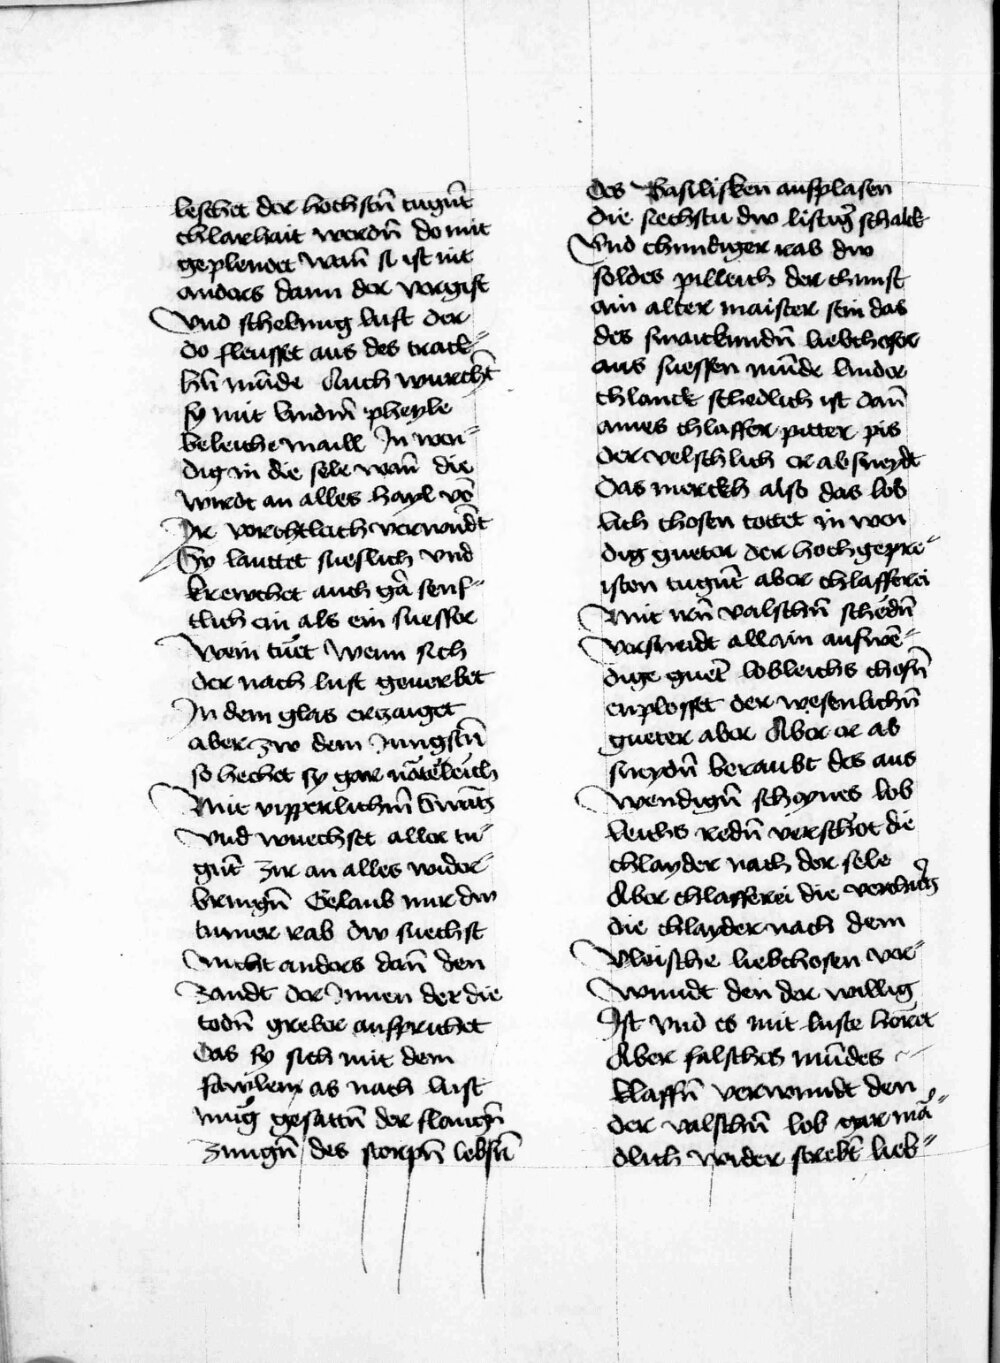 beschet der hochstn̄ tugn̄t
chlarhait werdn̄ do mit
geplendet Wan̄ si ist nit
anders dann der vergift
Vnd schebung luft der
do fleusset aus des track-
hn̄ mūde Auch wurcht̄
sy mit lindm̄ pheyle
beleiche maill In wen-
dig in die sele wan̄ die
wirdt an alles hayl vō
Ir vorchtleich verwūdt
Sy lauttet sueslich vnd
krewchet auch gar senf-
tlich ein als ein suesser
Wein tuet Wenn sich
der nach lust geuerbet
In dem glas erczaiget
aber zw dem Iungstn̄
so hechet sy gar nāteleich
Mit vipperlichm̄ swantz
Vnd wuechset aller tu-
gūt zir an alles wider-
bringn̄ Gelaub mir dw
tumer rab dw suechst
Nicht anders dan̄ den
zandt der Innen der die
todn̄ greber aufprichet
Das sy sich mit dem
fawlem as nach lust
mug gesattn̄ der slangn̄
zungn̄ des scorpn̄ lebsn̄
Des Basilisken aufplasen
die sechstu dw listiger schalck
Vnd chundiger rab dw
soldes pilleich der chunst
ain alter maister sein das
des smaickundn̄ liebchoser
aus suessen mūde linder
chlanck schedlich ist dan̄
aines chlaffer pitter pis
der velschlich er absneydt
Das merckh also das lob
lich chosen tottet in wen
dig gueter der hochgepre-
isten tugūt aber chlafferei
Mit irn̄ valschn̄ schedn̄
versneidt allain auswē-
dige guet lobleichs chosn̄
enplosset der wesenlichn̄
gueter aber Aber er ab
sneydn̄ beraubt des aus
wendign̄ schoynes lob
leichs redn̄ verschot die
chlayder nach der sele
Aber chlafferei die verchertz
die chlayder nach dem
Vleische liebchosen ver-
wundt den der willig
Ist vnd es mit luste horet
Aber falsches mūdes
klaffn̄ verwundt den
der valschn̄ lob gar mā-
dlich wider strebt lieb-